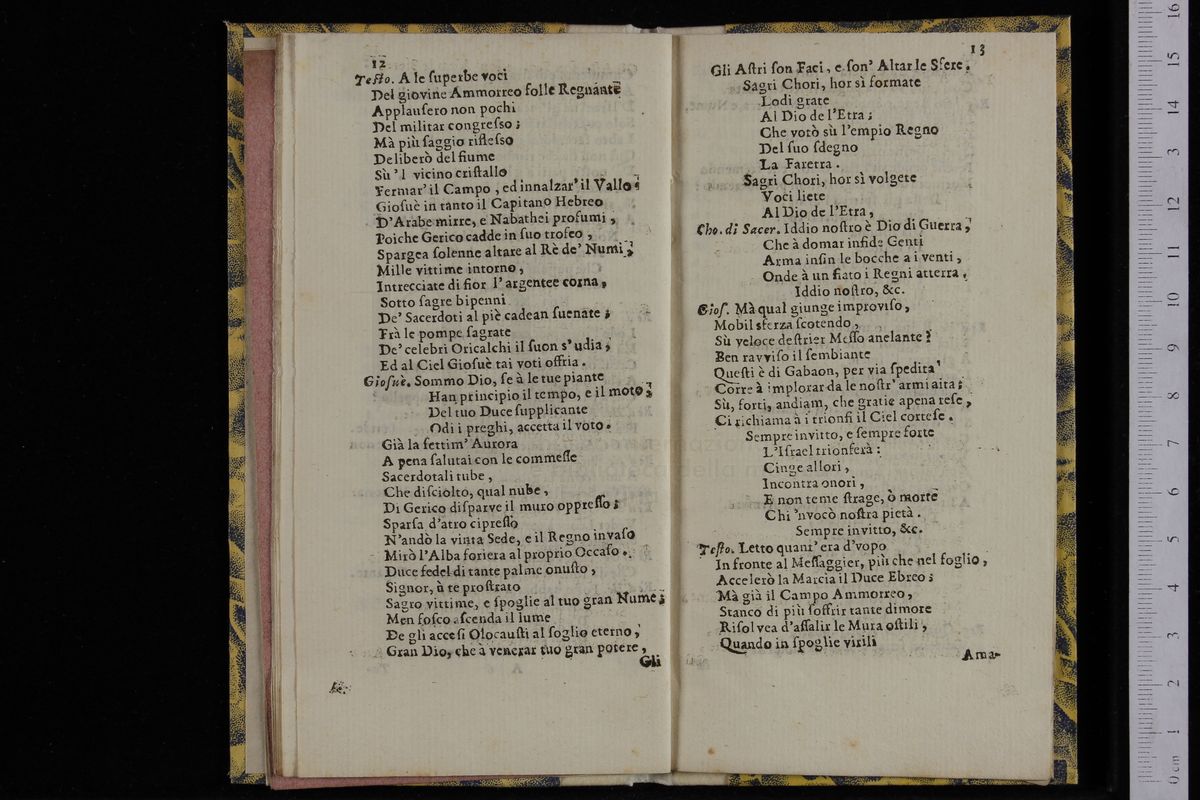 12
Teſto. A le ſuperbe voci
Del giovine Ammorreo folle Regnante
Applauſero non pochi
Del militar congreſso;
Mà più ſaggio rifleſso
Deliberò del fiume
Sù 'l vicino criſtallo
Fermar' il Campo, ed innalzar' il Vallo;
Gioſuè in tanto il Capitano Hebreo
D'Arabe mirre, e Nabathei profumi,
Poiche Gerico cadde in ſuo trofeo,
Spargea ſolenne altare al Rè de' Numi;
Mille vittime intorno,
Intrecciate di fior l'argentee corna,
Sotto ſagre bipenni
De' Sacerdoti al piè cadean ſuenate;
Frà le pompe ſagrate
De' celebri Oricalchi il ſuon s'udia,
Ed al Ciel Gioſuè tai voti offria.
Gioſuè. Sommo Dio, ſe à le tue piante
Han principio il tempo, e il moto;
Del tuo Duce ſupplicante
Odi i preghi, accetta il voto.
Già la ſettim' Aurora
A pena ſalutai con le commeſſe
Sacerdotali tube,
Che diſciolto, qual nube,
Di Gerico diſparve il muro oppreſſo;
Sparſa d'atro cipreſſo
N'andò la vinta Sede, e il Regno invaſo
Mirò l'Alba foriera al proprio Occaſo.
Duce fedel di tante palme onuſto,
Signor, à te proſtrato
Sagro vittime, e ſpoglie al tuo gran Nume;
Men foſco ſcenda il lume
De gli acceſi Olocauſti al ſoglio eterno,
Gran Dio, che à venerar tuo gran potere,
Gli
13
Gli Aſtri ſon Faci, e ſon' Altar le Sfere.
Sagri Chori, hor sì formate
Lodi grate
Al Dio de l'Etra;
Che votò sù l'empio Regno
Del ſuo ſdegno
La Faretra.
Sagri Chori, hor sì volgete
Voci liete
Al Dio de l'Etra,
Cho. di Sacer. Iddio noſtro è Dio di Guerra,
Che à domar infide Genti
Arma inſin le bocche a i venti,
Onde à un fiato i Regni atterra.
Iddio noſtro, &c.
Gioſ. Mà qual giunge improviſo,
Mobil sferza ſcotendo,
Sù veloce deſtrier Meſſo anelante?
Ben ravviſo il ſembiante
Queſti è di Gabaon, per via ſpedita
Corre à implorar da le noſtr' armi aita;
Sù, forti, andiam, che gratie apena reſe,
Ci richiama à i trionfi il Ciel corteſe.
Sempre invitto, e ſempre forte
L'Iſrael trionferà:
Cinge allori,
Incontra onori,
E non teme ſtrage, ò morte
Chi 'nvocò noſtra pietà.
Sempre invitto, &c.
Teſto. Letto quant' era d'vopo
In fronte al Meſſaggier, più che nel foglio,
Accelerò la Marcia il Duce Ebreo;
Mà già il Campo Ammorreo,
Stanco di più ſoffrir tante dimore
Riſolvea d'aſſalir le Mura oſtili,
Quando in ſpoglie virili
Ama-
0 cm 1 2 3 4 5 6 7 8 9 10 11 12 13 14 15 16